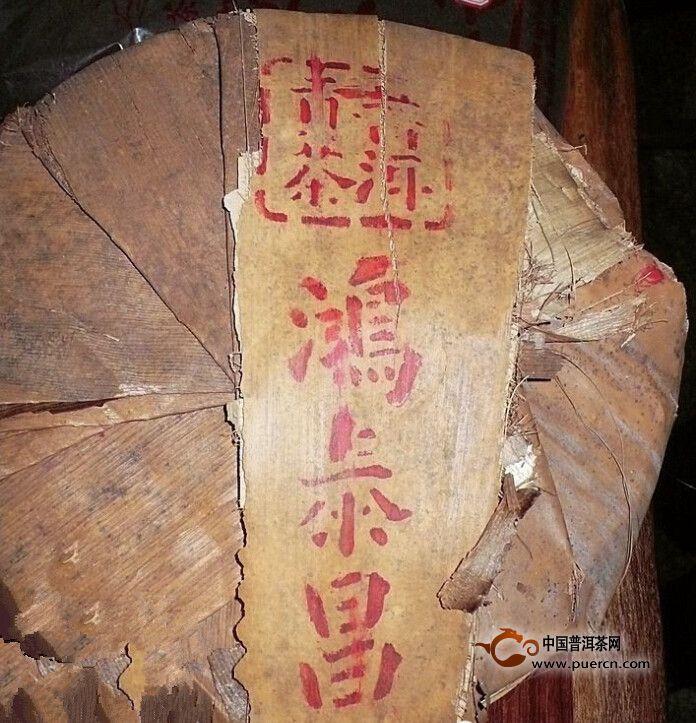 普洱
青茶
鴻泰昌
中国普洱茶网
www.puercn.com